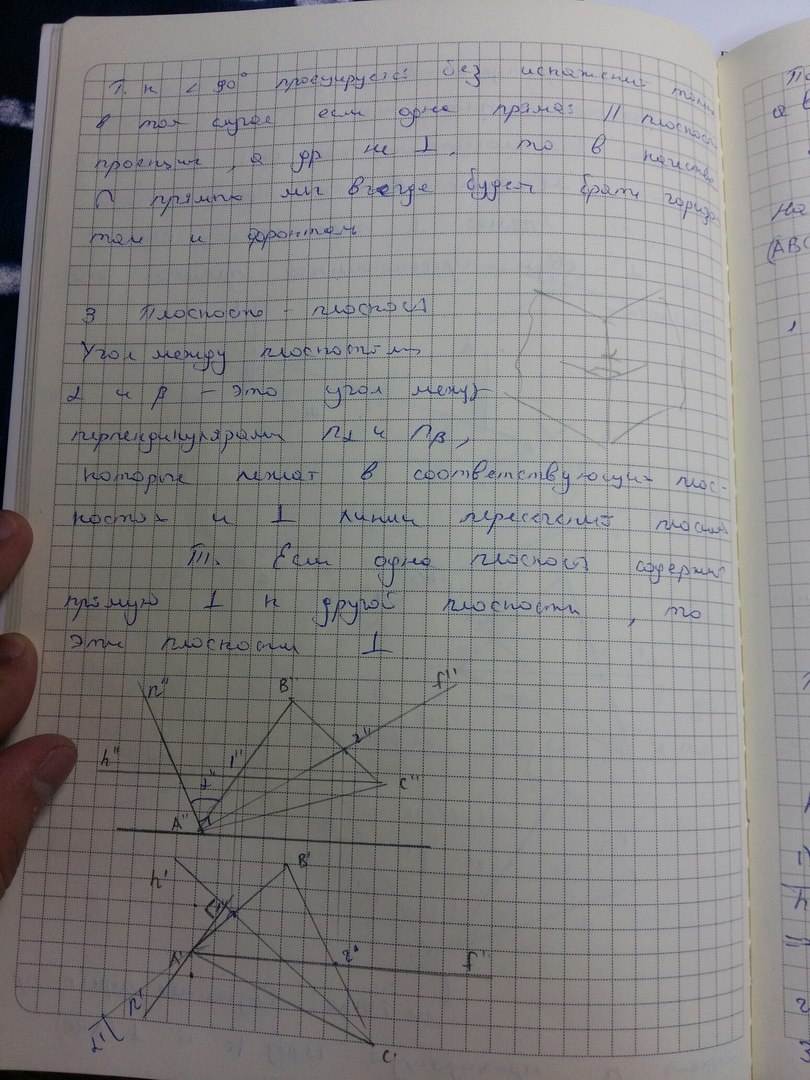 Т. к < 90° проецируется без искажения только
в том случае если одна прямая // плоскост
проекции, а др не ⊥, то в качестве
∩ прямых мы всегда будем брать горизо
тал и фронтал
3 Плоскость - плоскость
Угол между плоскостями
α и β - это угол между
перпендикулярами nα и nβ,
которые лежат в соответствующих плос-
костях и ⊥ линии пересечения плоск
Т. Если одна плоскость содержит
прямую ⊥ к другой плоскости, то
эти плоскости ⊥
n" B f"
h" 1" 2" C"
α"
A"
h' B'
A' 2' f'
n'
α' C'